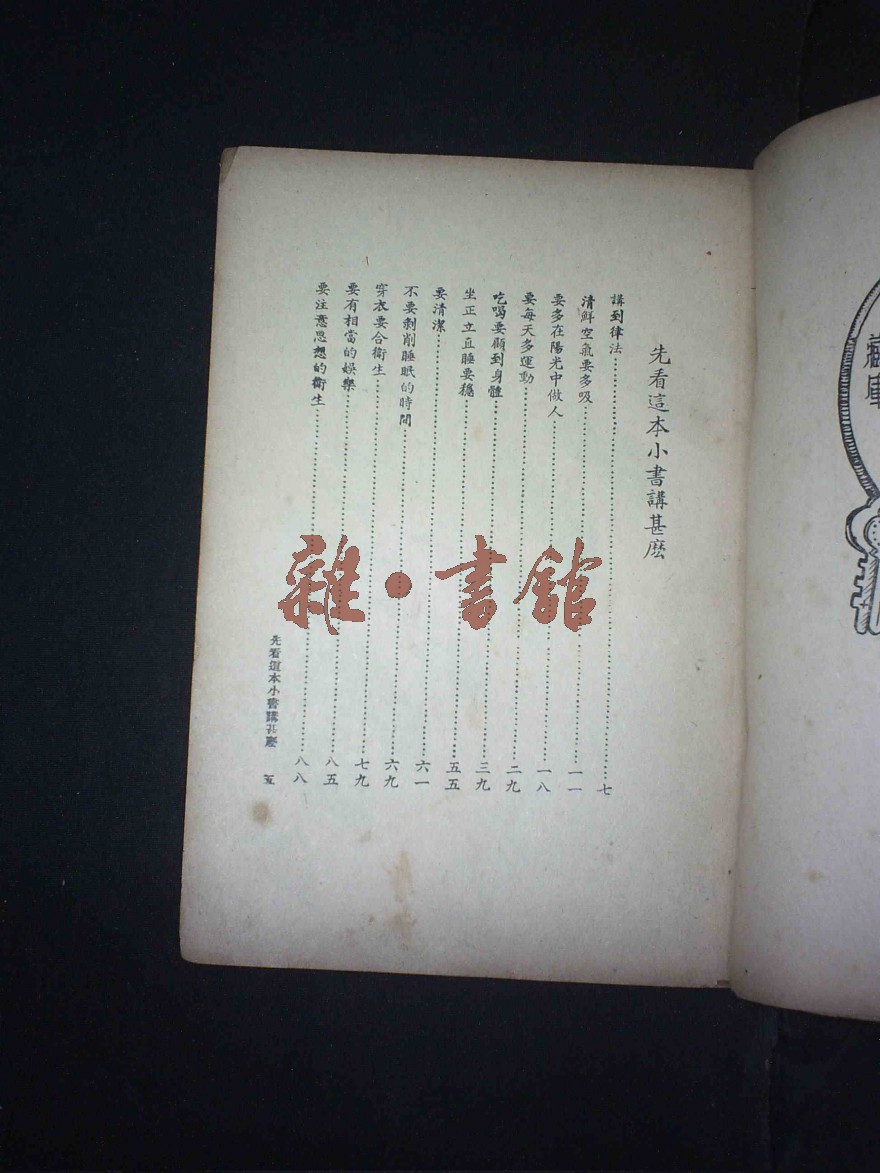 藏庫
先看這本小書講甚麽
講到律法……七
清鮮空氣要多吸……一一
要多在陽光中做人……一八
要每天多運動……二九
吃喝要顧到身體……三九
坐正立直睡要穩……五五
要清潔……六一
不要剝削睡眠的時間……六九
穿衣要合衛生……七九
要有相當的娛樂……八五
要注意思想的衛生……八八
先看這本小書講甚麽 五
雜·書館